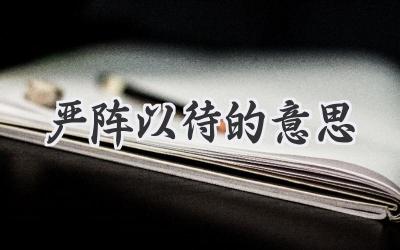 严阵以待的意思